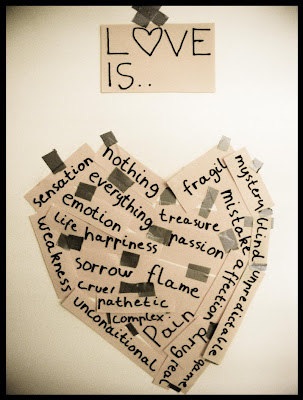 L♡VE
IS..
sensation
nothing
everything
emotion
treasure
fragil
mystery
life
happiness
passion
mistake
blind
weakness
sorrow
flame
affection
unpredictable
cruel
pathetic
complex
pain
drug
unconditional
real
game